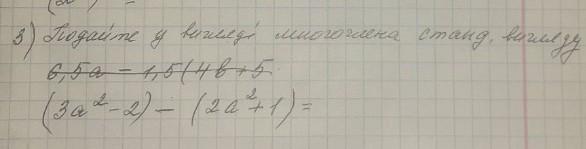 3) Подайте у вигляді многочлена станд. вигляду
6,5a - 1,5(4b+5
(3a²-2) - (2a²+1)=